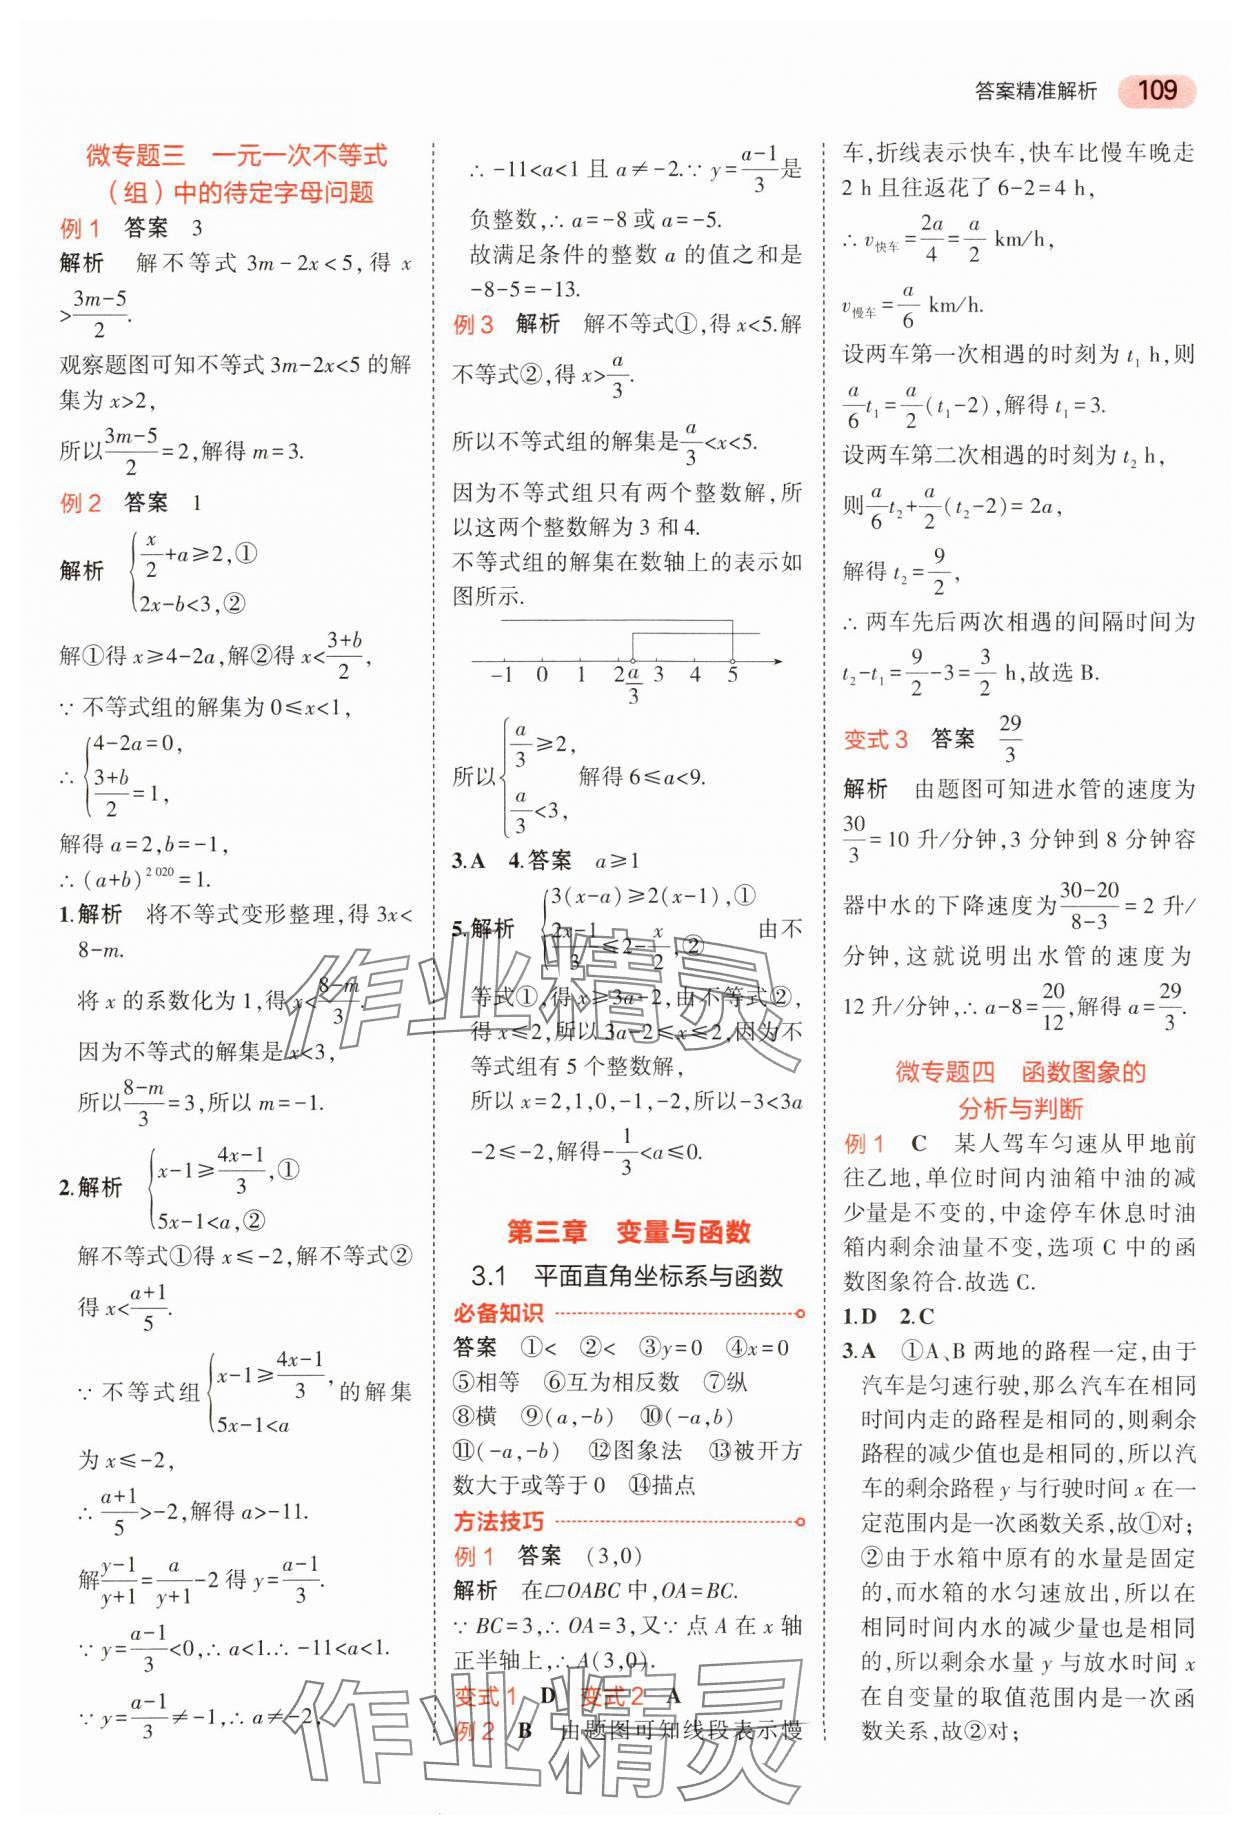 答案精准解析 109
微专题三 一元一次不等式
（组）中的待定字母问题
例1 答案 3
解析 解不等式 3m-2x<5,得 x
>$\frac{3m-5}{2}$.
观察题图可知不等式 3m-2x<5 的解
集为 x>2,
所以$\frac{3m-5}{2}$=2,解得 m=3.
例2 答案 1
解析 $\begin{cases}\frac{x}{2}+a≥2,①\\2x-b<3,②\end{cases}$
解①得 x≥4-2a,解②得 x<$\frac{3+b}{2}$,
∵ 不等式组的解集为 0≤x<1,
∴ $\begin{cases}4-2a=0,\\\frac{3+b}{2}=1,\end{cases}$
解得 a=2,b=-1,
∴ (a+b)$^{2 020}$=1.
1.解析 将不等式变形整理,得 3x<
8-m.
将 x 的系数化为 1,得 x<$\frac{8-m}{3}$.
因为不等式的解集是 x<3,
所以$\frac{8-m}{3}$=3,所以 m=-1.
2.解析 $\begin{cases}x-1≥\frac{4x-1}{3},①\\5x-1<a,②\end{cases}$
解不等式①得 x≤-2,解不等式②
得 x<$\frac{a+1}{5}$.
∵ 不等式组$\begin{cases}x-1≥\frac{4x-1}{3},\\5x-1<a\end{cases}$的解集
为 x≤-2,
∴ $\frac{a+1}{5}$>-2,解得 a>-11.
解$\frac{y-1}{y+1}$=$\frac{a}{y+1}$-2 得 y=$\frac{a-1}{3}$.
∵ y=$\frac{a-1}{3}$<0,∴ a<1.∴ -11<a<1.
∵ y=$\frac{a-1}{3}$≠-1,∴ a≠-2,
∴ -11<a<1 且 a≠-2.∵ y=$\frac{a-1}{3}$是
负整数,∴ a=-8 或 a=-5.
故满足条件的整数 a 的值之和是
-8-5=-13.
例3 解析 解不等式①,得 x<5.解
不等式②,得 x>$\frac{a}{3}$.
所以不等式组的解集是$\frac{a}{3}$<x<5.
因为不等式组只有两个整数解,所
以这两个整数解为 3 和 4.
不等式组的解集在数轴上的表示如
图所示.
-1 0 1 2 $\frac{a}{3}$ 3 4 5
所以$\begin{cases}\frac{a}{3}≥2,\\\frac{a}{3}<3,\end{cases}$解得 6≤a<9.
3.A 4.答案 a≥1
5.解析 $\begin{cases}3(x-a)≥2(x-1),①\\\frac{2x-1}{3}≤2-\frac{x}{2},②\end{cases}$ 由不
等式①,得 x≥3a-2,由不等式②,
得 x≤2,所以 3a-2≤x≤2,因为不
等式组有 5 个整数解,
所以 x=2,1,0,-1,-2,所以-3<3a
-2≤-2,解得-$\frac{1}{3}$<a≤0.
第三章 变量与函数
3.1 平面直角坐标系与函数
必备知识
答案 ①< ②< ③y=0 ④x=0
⑤相等 ⑥互为相反数 ⑦纵
⑧横 ⑨(a,-b) ⑩(-a,b)
⑪(-a,-b) ⑫图象法 ⑬被开方
数大于或等于 0 ⑭描点
方法技巧
例1 答案 (3,0)
解析 在▱OABC 中,OA=BC.
∵ BC=3,∴ OA=3,又∵ 点 A 在 x 轴
正半轴上,∴ A(3,0).
变式1 D 变式2 A
例2 B 由题图可知线段表示慢
车,折线表示快车,快车比慢车晚走
2 h 且往返花了 6-2=4 h,
∴ v$_{快车}$=$\frac{2a}{4}$=$\frac{a}{2}$ km/h,
v$_{慢车}$=$\frac{a}{6}$ km/h.
设两车第一次相遇的时刻为 t$_1$ h,则
$\frac{a}{6}$t$_1$=$\frac{a}{2}$(t$_1$-2),解得 t$_1$=3.
设两车第二次相遇的时刻为 t$_2$ h,
则$\frac{a}{6}$t$_2$+$\frac{a}{2}$(t$_2$-2)=2a,
解得 t$_2$=$\frac{9}{2}$,
∴ 两车先后两次相遇的间隔时间为
t$_2$-t$_1$=$\frac{9}{2}$-3=$\frac{3}{2}$ h,故选 B.
变式3 答案 $\frac{29}{3}$
解析 由题图可知进水管的速度为
$\frac{30}{3}$=10 升/分钟,3 分钟到 8 分钟容
器中水的下降速度为$\frac{30-20}{8-3}$=2 升/
分钟,这就说明出水管的速度为
12 升/分钟,∴ a-8=$\frac{20}{12}$,解得 a=$\frac{29}{3}$.
微专题四 函数图象的
分析与判断
例1 C 某人驾车匀速从甲地前
往乙地,单位时间内油箱中油的减
少量是不变的,中途停车休息时油
箱内剩余油量不变,选项 C 中的函
数图象符合.故选 C.
1.D 2.C
3.A ①A、B 两地的路程一定,由于
汽车是匀速行驶,那么汽车在相同
时间内走的路程是相同的,则剩余
路程的减少值也是相同的,所以汽
车的剩余路程 y 与行驶时间 x 在一
定范围内是一次函数关系,故①对;
②由于水箱中原有的水量是固定
的,而水箱的水匀速放出,所以在
相同时间内水的减少量也是相同
的,所以剩余水量 y 与放水时间 x
在自变量的取值范围内是一次函
数关系,故②对;
作业精灵
作业精灵